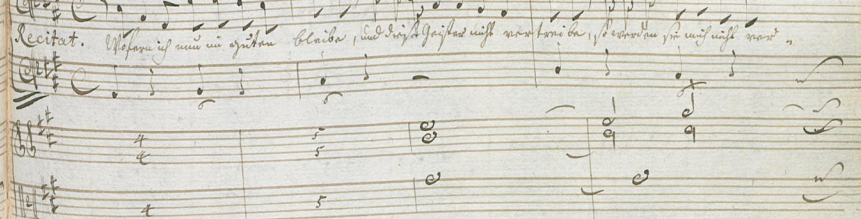 Recitat. Wofern ich nun im guten bleibe, und diese Geister nicht vertreibe, so werden sie mich nicht ver-
4 5
4 5
4 5